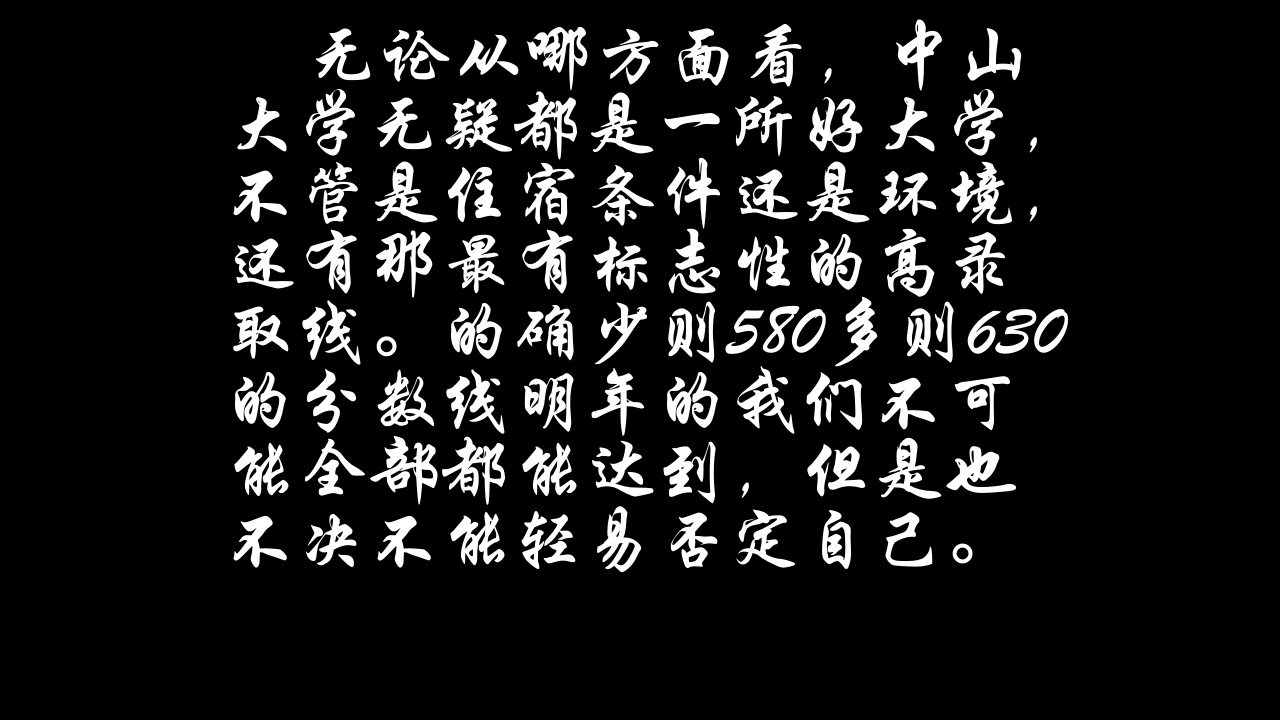 无论从哪方面看，中山
大学无疑都是一所好大学，
不管是住宿条件还是环境，
还有那最有标志性的高录
取线。的确少则580多则630
的分数线明年的我们不可
能全部都能达到，但是也
不决不能轻易否定自己。